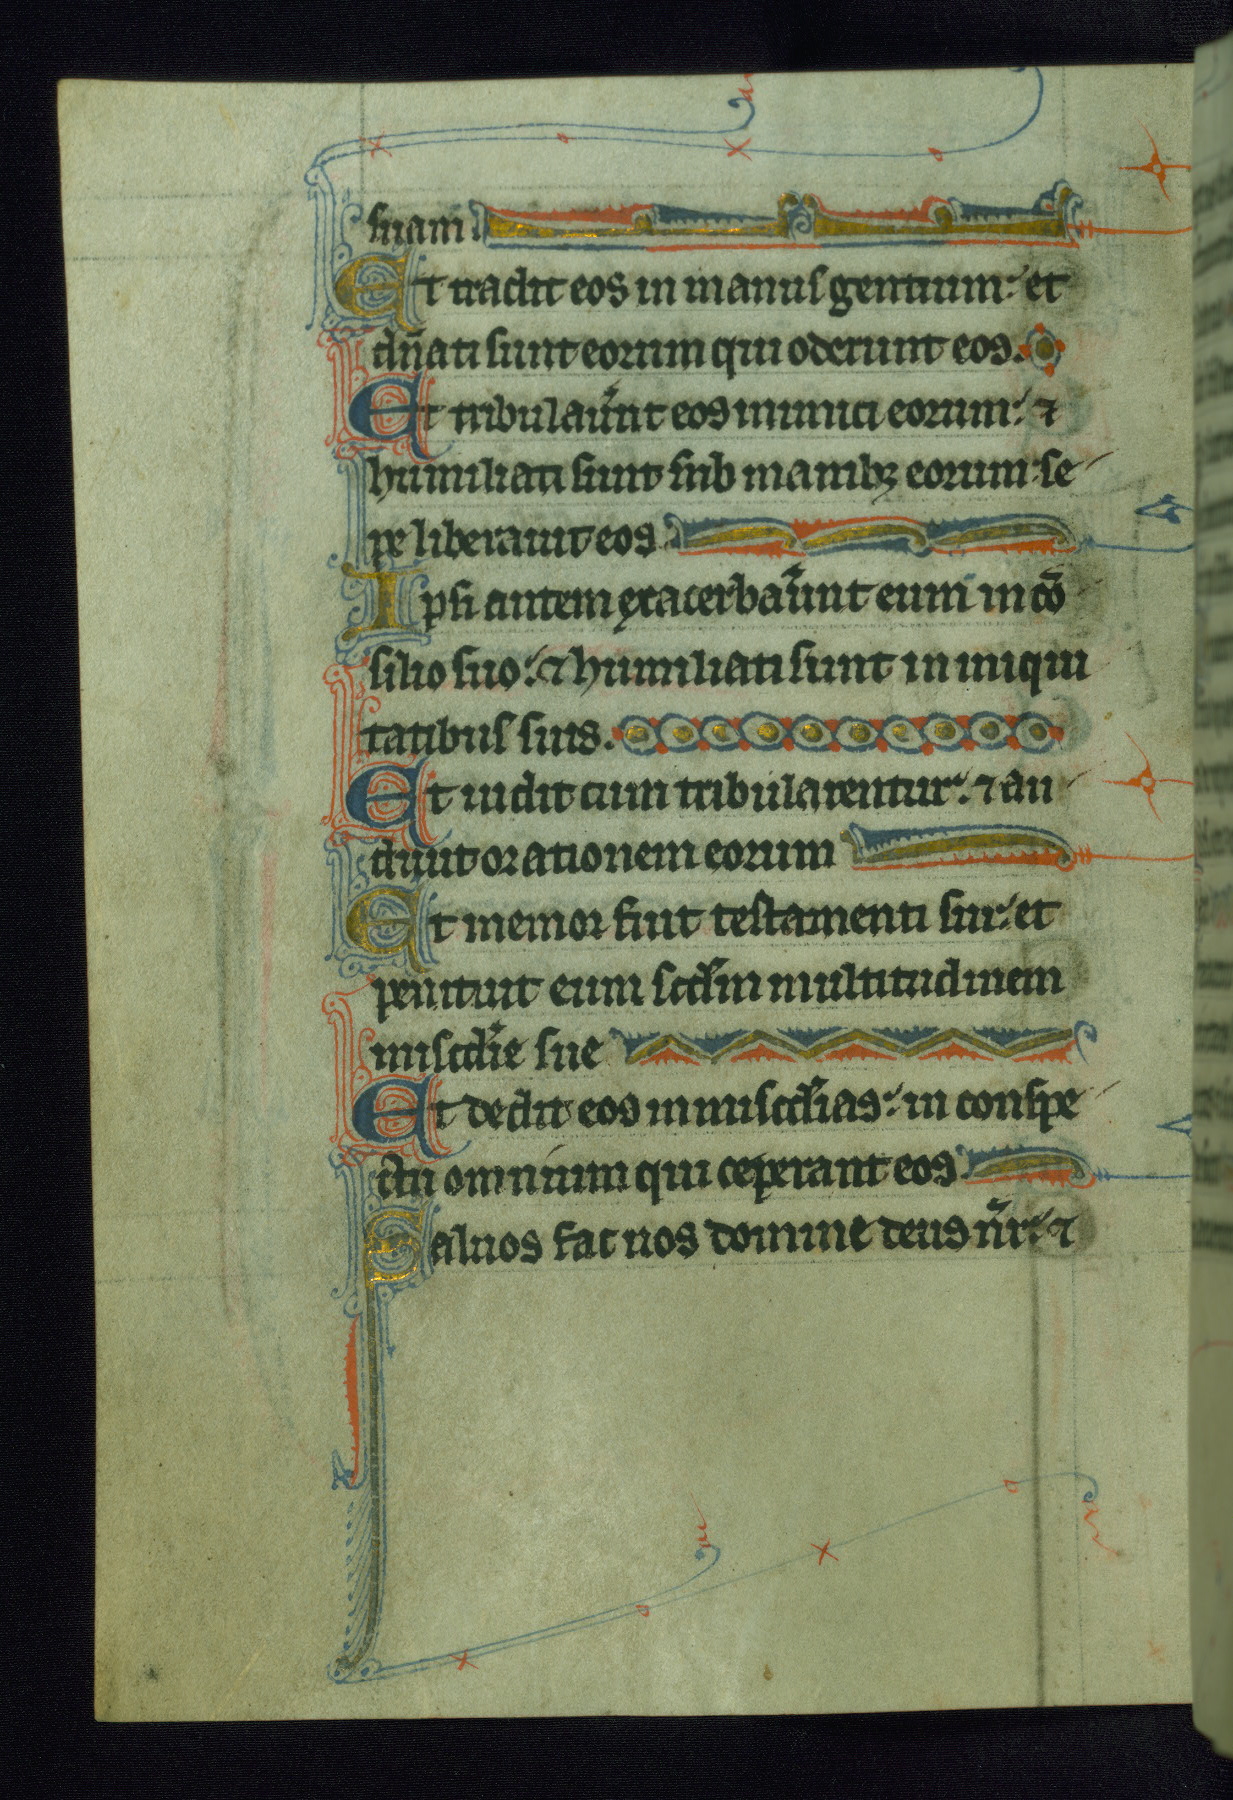 suam
Et tradit eos in manus gentium: et
dn̄ati sunt eorum qui oderunt eos.
Et tribulaut̄nt eos inimici eorum: ⁊
humiliati sunt sub manibꝫ eorum: se
pe liberauit eos
Ipsi autem exacerbau̅unt eum in cō
silio suo: ⁊ humiliati sunt in iniqui
tatibus suis.
Et uidit cum tribularentur: ⁊ au
diuit orationem eorum
Et memor fuit testamenti sui: et
penituit eum scd̄m multitudinem
miscd̄ie sue
Et dedit eos in miscd̄ias: in conspe
ctu omnium qui ceperant eos
Saluos fac nos domine deus nr̄: ⁊